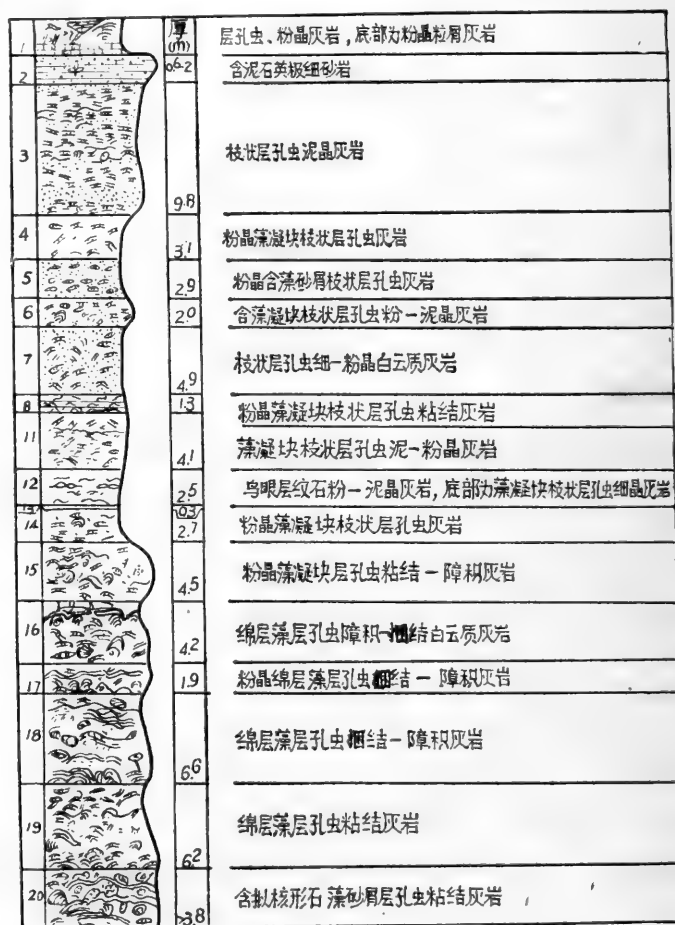 厚(m)
1 层孔虫、粉晶灰岩，底部为粉晶粒屑灰岩
2 0.6-2 含泥石英极细砂岩
3 9.8 枝状层孔虫泥晶灰岩
4 3.1 粉晶藻凝块枝状层孔虫灰岩
5 2.9 粉晶含藻砂屑枝状层孔虫灰岩
6 2.0 含藻凝块枝状层孔虫粉一泥晶灰岩
7 4.9 枝状层孔虫细一粉晶白云质灰岩
8 1.3 粉晶藻凝块枝状层孔虫粘结灰岩
11 4.1 藻凝块枝状层孔虫泥-粉晶灰岩
12 2.5 鸟眼层纹石粉一泥晶灰岩，底部为藻凝块枝状层孔虫细晶灰岩
13 0.3
14 2.7 粉晶藻凝块枝状层孔虫灰岩
15 4.5 粉晶藻凝块层孔虫粘结一障积灰岩
16 4.2 绵层藻层孔虫障积一捆结白云质灰岩
17 1.9 粉晶绵层藻层孔虫捆结一障积灰岩
18 6.6 绵层藻层孔虫捆结一障积灰岩
19 6.2 绵层藻层孔虫粘结灰岩
20 >3.8 含拟核形石藻砂屑层孔虫粘结灰岩